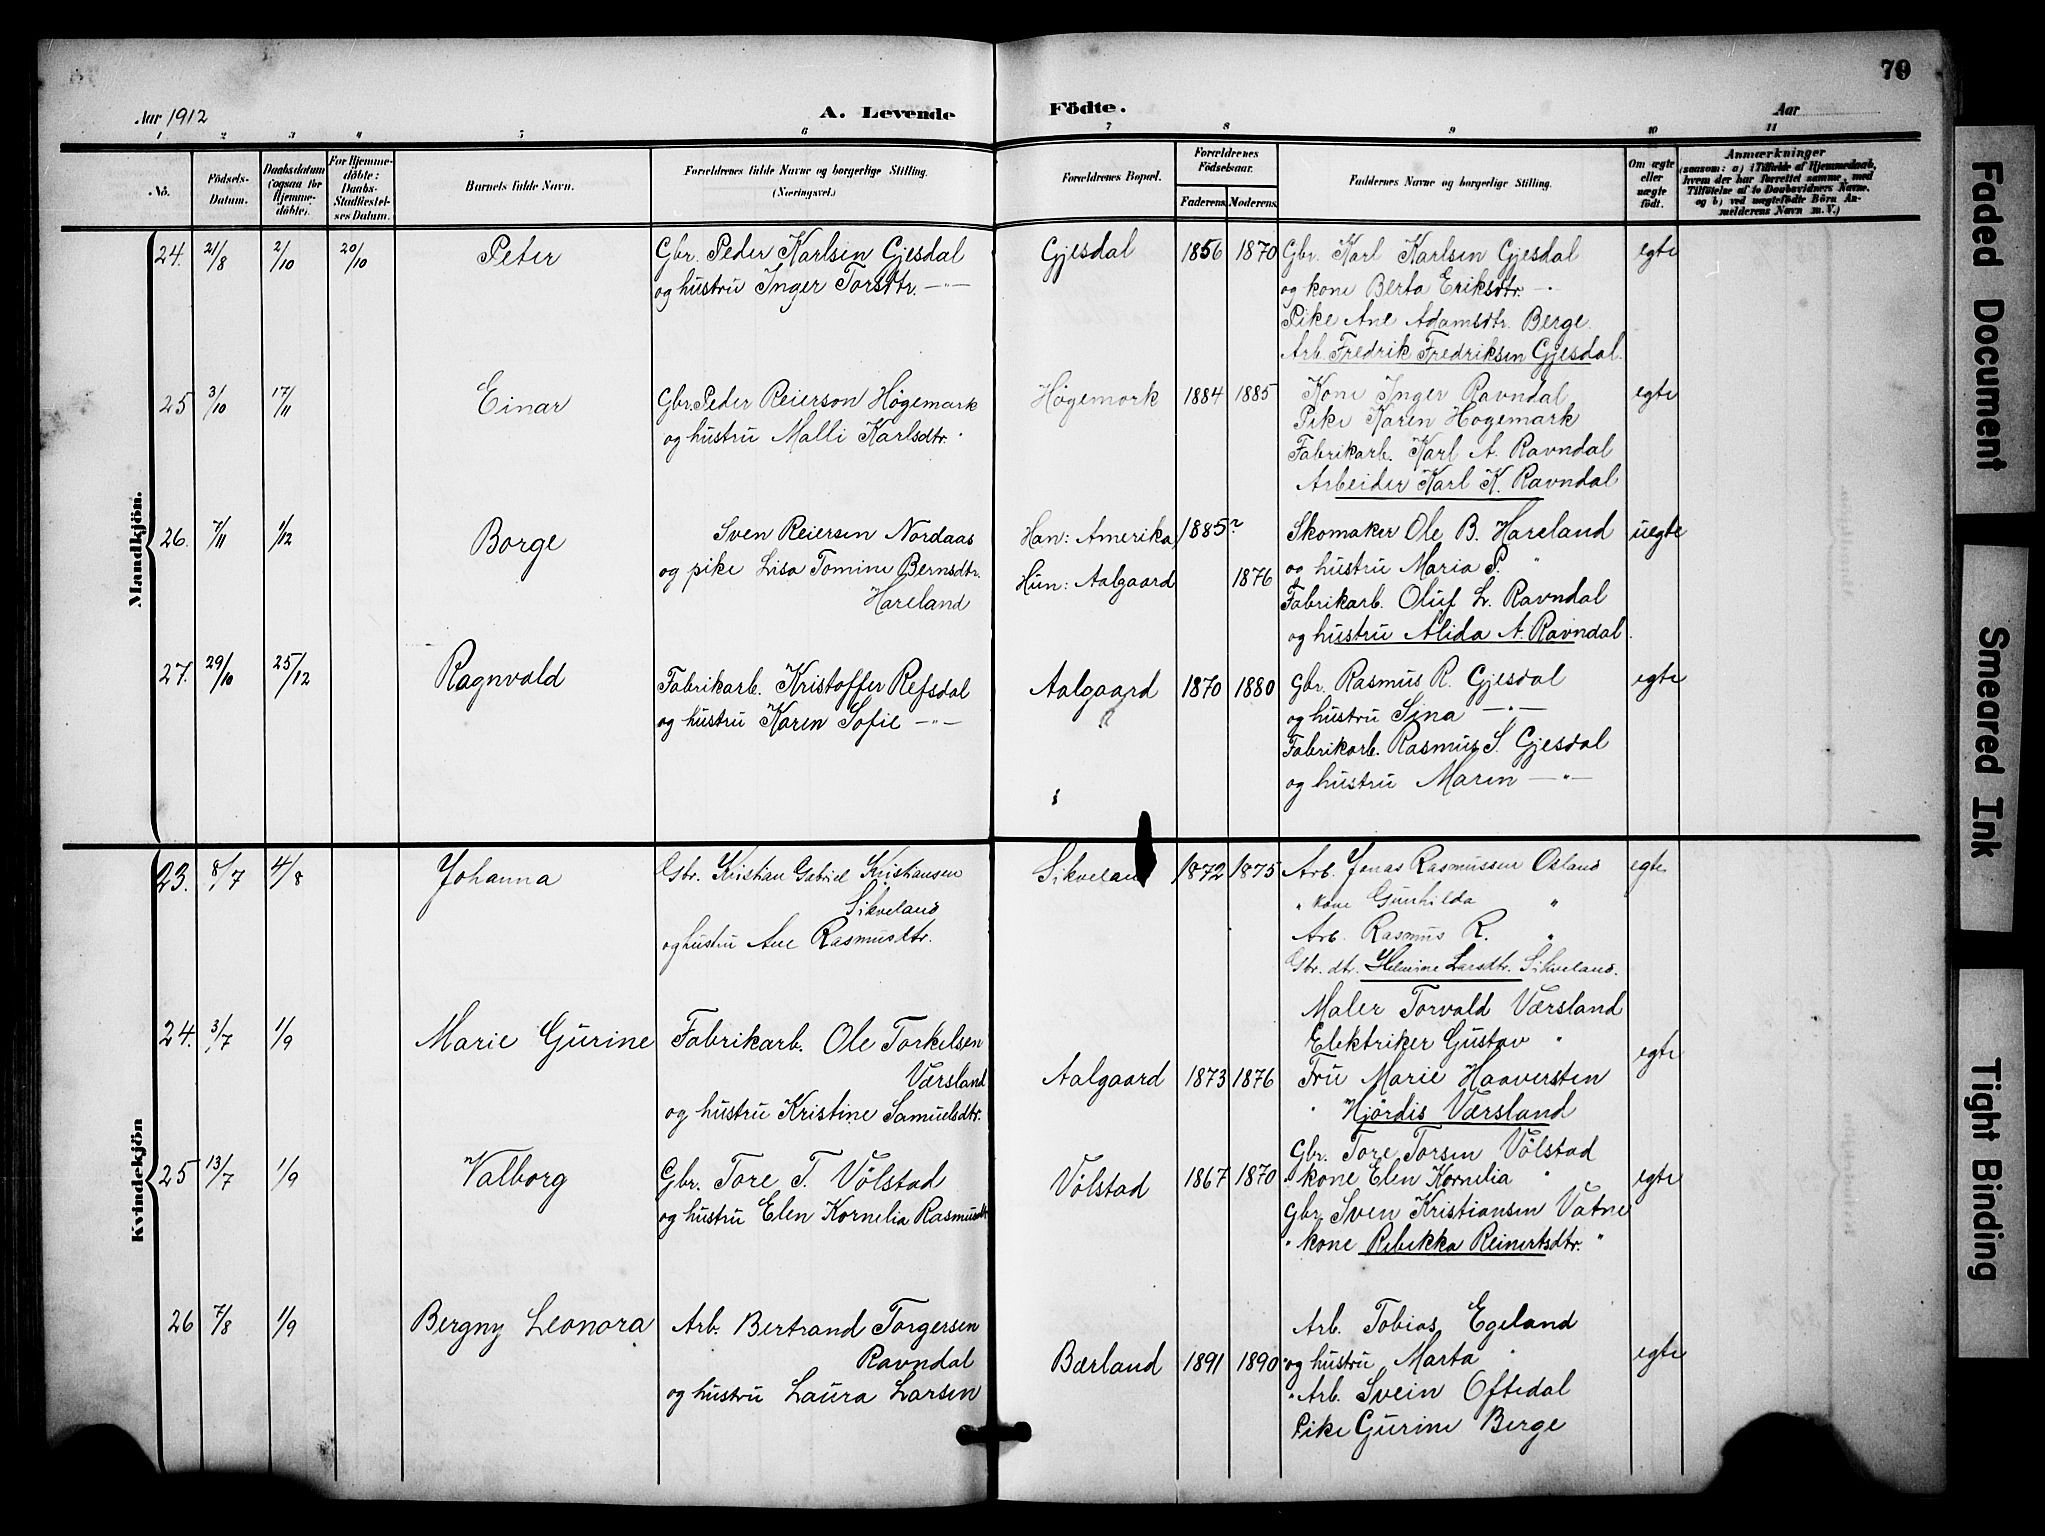 79
Aar 1912
A. Levende Födte.
Aar
1 2 3 4 5 6 7 8 9 10 11
No.
Födsels-Datum.
Daabsdatum (ogsaa for Hjemmedöbte).
For Hjemmedöbte: Daabs-Stadfæstelses Datum.
Barnets fulde Navn.
Forældrenes fulde Navne og borgerlige Stilling. (Næringsvei.)
Forældrenes Bopæl.
Forældrenes Födselsaar.
Faderens. Moderens.
Faddernes Navne og borgerlige Stilling.
Om ægte eller uægte födt.
Anmærkninger
(saasom: a) i Tilfælde af Hjemmedaab, hvem der har forrettet samme, med Tilföielse af to Daabsvidners Navne. og b) ved uægtefödte Börn Anmelderens Navn m. V.)
Mandkjön.
24. 21/8 2/10 20/10 Peter Gbr. Peder Karlsen Gjesdal Gjesdal 1856 1870 Gbr. Karl Karlsen Gjesdal egte
og hustru Inger Torsttr. —"— og kone Berta Eriksdtr. —"
Pike Ane Adamsdtr. Berge.
Arb. Fredrik Fredriksen Gjesdal.
25 3/10 17/11 Einar Gbr. Peder Reierson Högemark Högemork 1884 1885 Kone Inger Ravndal egte
og hustru Malli Karlsdtr. Pike Karen Hogemark
Fabrikarb. Karl A. Ravndal
Arbeider Karl K. Ravndal
26. 7/11 1/12 Borge Sven Reiersen Nordaas Han: Amerika 1885? Skomaker Ole B. Hareland uegte
og pike Lisa Tomine Bernsdtr. Hun: Aalgaard 1876 og hustru Maria P. "
Hareland Fabrikarb. Oluf L. Ravndal
og hustru Alida A. Ravndal.
27. 29/10 25/12 Ragnvald Fabrikarb. Kristoffer Refsdal Aalgaard 1870 1880 Gbr. Rasmus R. Gjesdal egte
og hustru Karen Sofie —"— og hustru Sina —"—
Fabrikarb. Rasmus S. Gjesdal
og hustru Maren —"—
Kvindekjön
23. 8/7 4/8 Johanna Gbr. Kristian Gabriel Kristiansen Sikveland 1872 1875 Arb. Jonas Rasmussen Osland egte
Sikveland " kone Gunhilda "
og hustru Ane Rasmusdtr. Arb. Rasmus R. "
Gbr. dt. Helmine Larsdtr. Sikveland.
24. 3/7 1/9 Marie Gurine Fabrikarb. Ole Torkelsen Maler Torvald Værsland
Værsland Elektriker Gustav " egte
Aalgaard 1873 1876 Fru Marie Haaversten
og hustru Kristine Samuelsdtr. " Hjördis Værsland
25 13/7 1/9 Valborg Gbr. Tore T. Völstad Völstad 1867 1870 Gbr. Tore Torsen Völstad egte
og hustru Elen Kornelia Rasmusdt " kone Elen Kornelia "
Gbr. Sven Kristiansen Vatne
" kone Rebekka Reinertsdtr. "
26 7/8 1/9 Bergny Leonora Arb. Bertrand Torgersen Arb. Tobias Egeland
Ravndal Bærland 1891 1890 og hustru Marta " egte
og hustru Laura Larsen Arb. Svein Oftedal
Pike Gurine Berge
Faded Document
Smeared Ink
Tight Binding